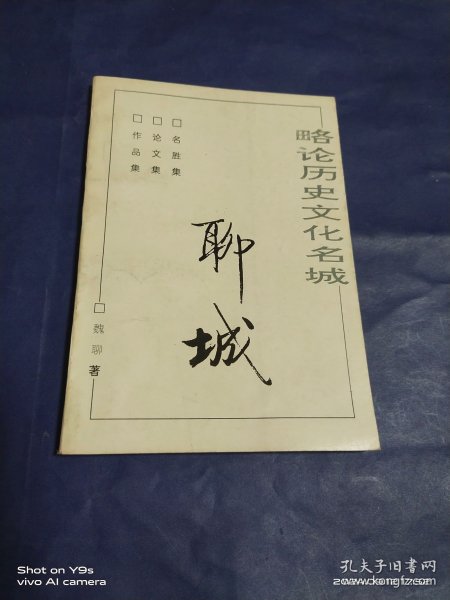 略论历史文化名城
□名胜集
□论文集
□作品集
聊城
□魏聊著
Shot on Y9s
vivo AI camera
孔夫子旧书网